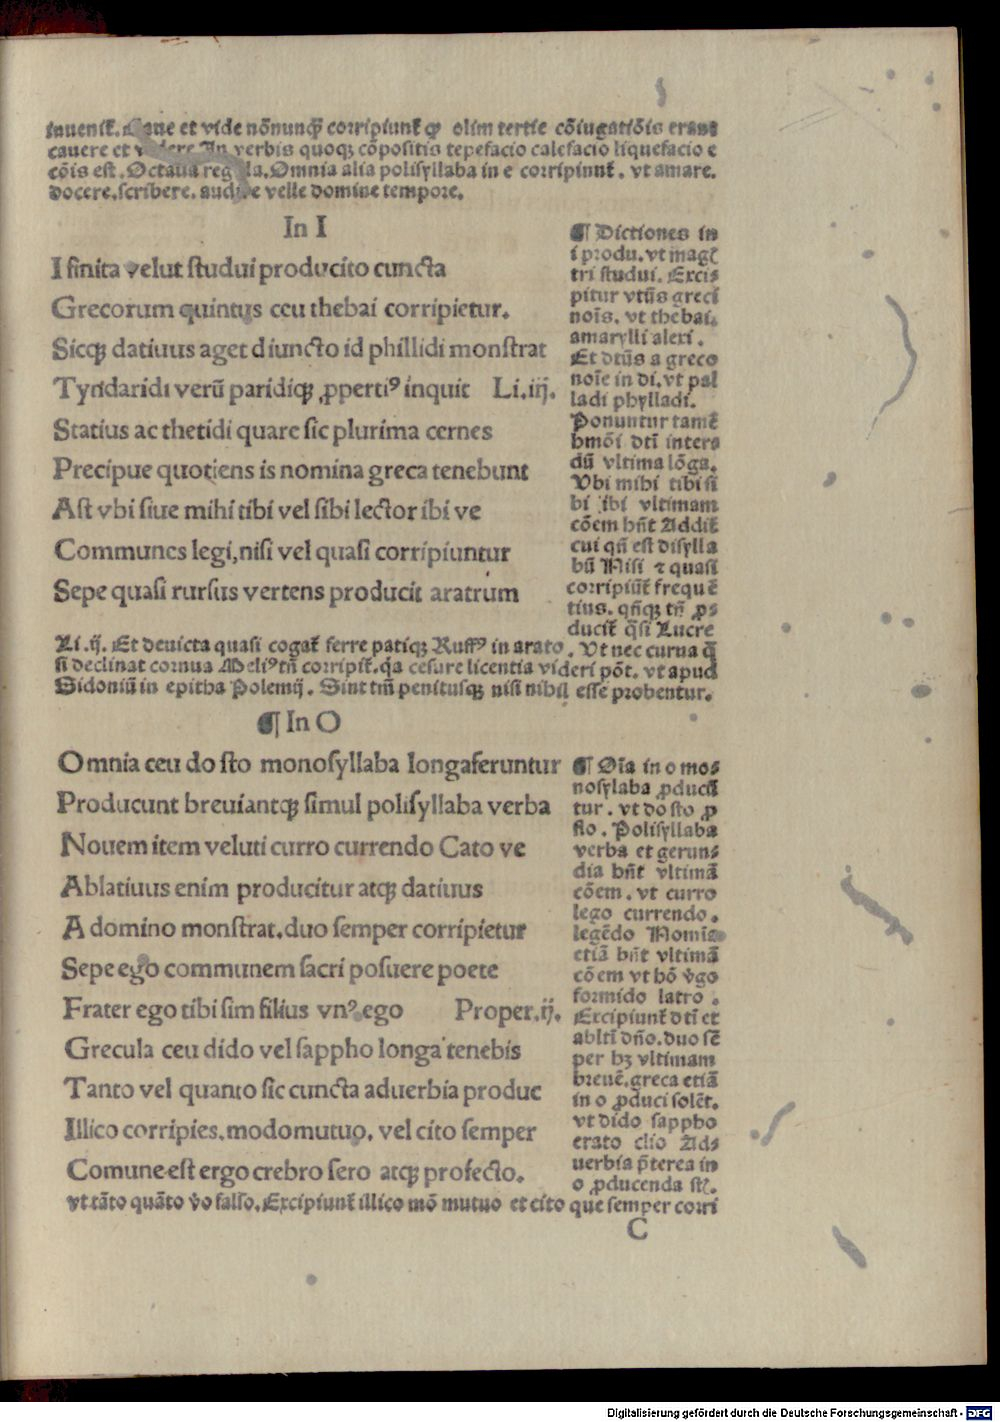 inuenit᷑. Caue et vide nōnunq̄ꝫ corripiunt᷑ ꝙ olim tertie cōiugatiōis erant
cauere et videre An verbis quoqꝫ cōpositis tepefacio calefacio liquefacio e
cōis est. Octaua regula. Omnia alia polisyllaba in e corripiunt᷑. vt amare.
docere. scribere. audire velle domine tempore.
In I
I finita velut studui producito cuncta
Grecorum quintus ceu thebai corripietur.
Sicqꝫ datiuus aget diuncto id phillidi monstrat
Tyndaridi verū paridiqꝫ ꝓpertiꝰ inquit Li. iij.
Statius ac thetidi quare sic plurima cernes
Precipue quotiens is nomina greca tenebunt
Ast vbi siue mihi tibi vel sibi lector ibi ve
Communes legi, nisi vel quasi corripiuntur
Sepe quasi rursus vertens producit aratrum
¶ Dictiones in
i produ. vt maḡ
tri studui. Exci⸗
pitur vtūs greci
nois̄. vt thebai.
amarylli alexi.
Et dtūs a greco
noīe in di. vt pal
ladi phylladi.
Ponuntur tamē
hmōi dtī inter⸗
dū vltima lōga.
Vbi mibi tibi si
bi ibi vltimam
cōem hn̄t Addit᷑
cui qn̄ est disylla
bū Nisi ⁊ quasi
corripiūt᷑ frequē
tius. qn̄qꝫ tn̄ ꝓ⸗
ducit᷑ q̄si Lucre
Li. ij. Et deuicta quasi cogat᷑ ferre patiqꝫ Ruffꝰ in arato. Vt nec curua q̄
si declinat cornua Meliꝰ tn̄ corripit᷑. q̄a cesure licentia videri pōt. vt apud
Sidoniū in epitha Polemij. Sint tm̄ penitusqꝫ nisi nihil esse probentur.
¶ In O
Omnia ceu do sto monosyllaba longa feruntur
Producunt breuiantqꝫ simul polisyllaba verba
Nouem item veluti curro currendo Cato ve
Ablatiuus enim producitur atqꝫ datiuus
A domino monstrat. duo semper corripietur
Sepe ego communem sacri posuere poete
Frater ego tibi sim filius vnꝰ ego Proper. ij.
Grecula ceu dido vel sappho longa tenebis
Tanto vel quanto sic cuncta aduerbia produc
Illico corripies. modo mutuo. vel cito semper
Comune est ergo crebro sero atqꝫ profecto.
¶ Oīa in o mo⸗
nosylaba ꝓducū
tur. vt do sto ꝓ
flo. Polisyllaba
verba et gerun⸗
dia hn̄t vltimā
cōem. vt curro
lego currendo.
legēdo Nomīa
etiā hn̄t vltimā
cōem vt hō v̄go
formido latro.
Excipiunt᷑ dtī et
abltī dn̄o. duo sē
per hꝫ vltimam
breuē. greca etiā
in o ꝓduci solēt.
vt dido sappho
erato clio Ad⸗
uerbia p̄terea in
o ꝓducenda st̄.
vt tāto quāto v̄o falso. Excipiunt᷑ illico mō mutuo et cito que semper corri
C
Digitalisierung gefördert durch die Deutsche Forschungsgemeinschaft - DFG